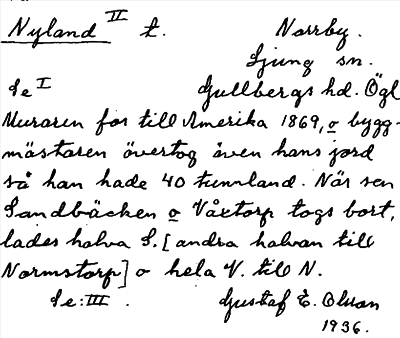 Nyland II t. Norrby.
Ljung sn.
Se I Gullbergs hd. Ögl
Muraren for till Amerika 1869, o bygg-
mästaren övertog även hans jord
så han hade 40 tunnland. När sen
Sandbäcken o Våxtorp togs bort,
lades halva S. [andra halvan till
Normstorp] o hela V. till N.
Se: III. Gustaf E. Olsson
1936.